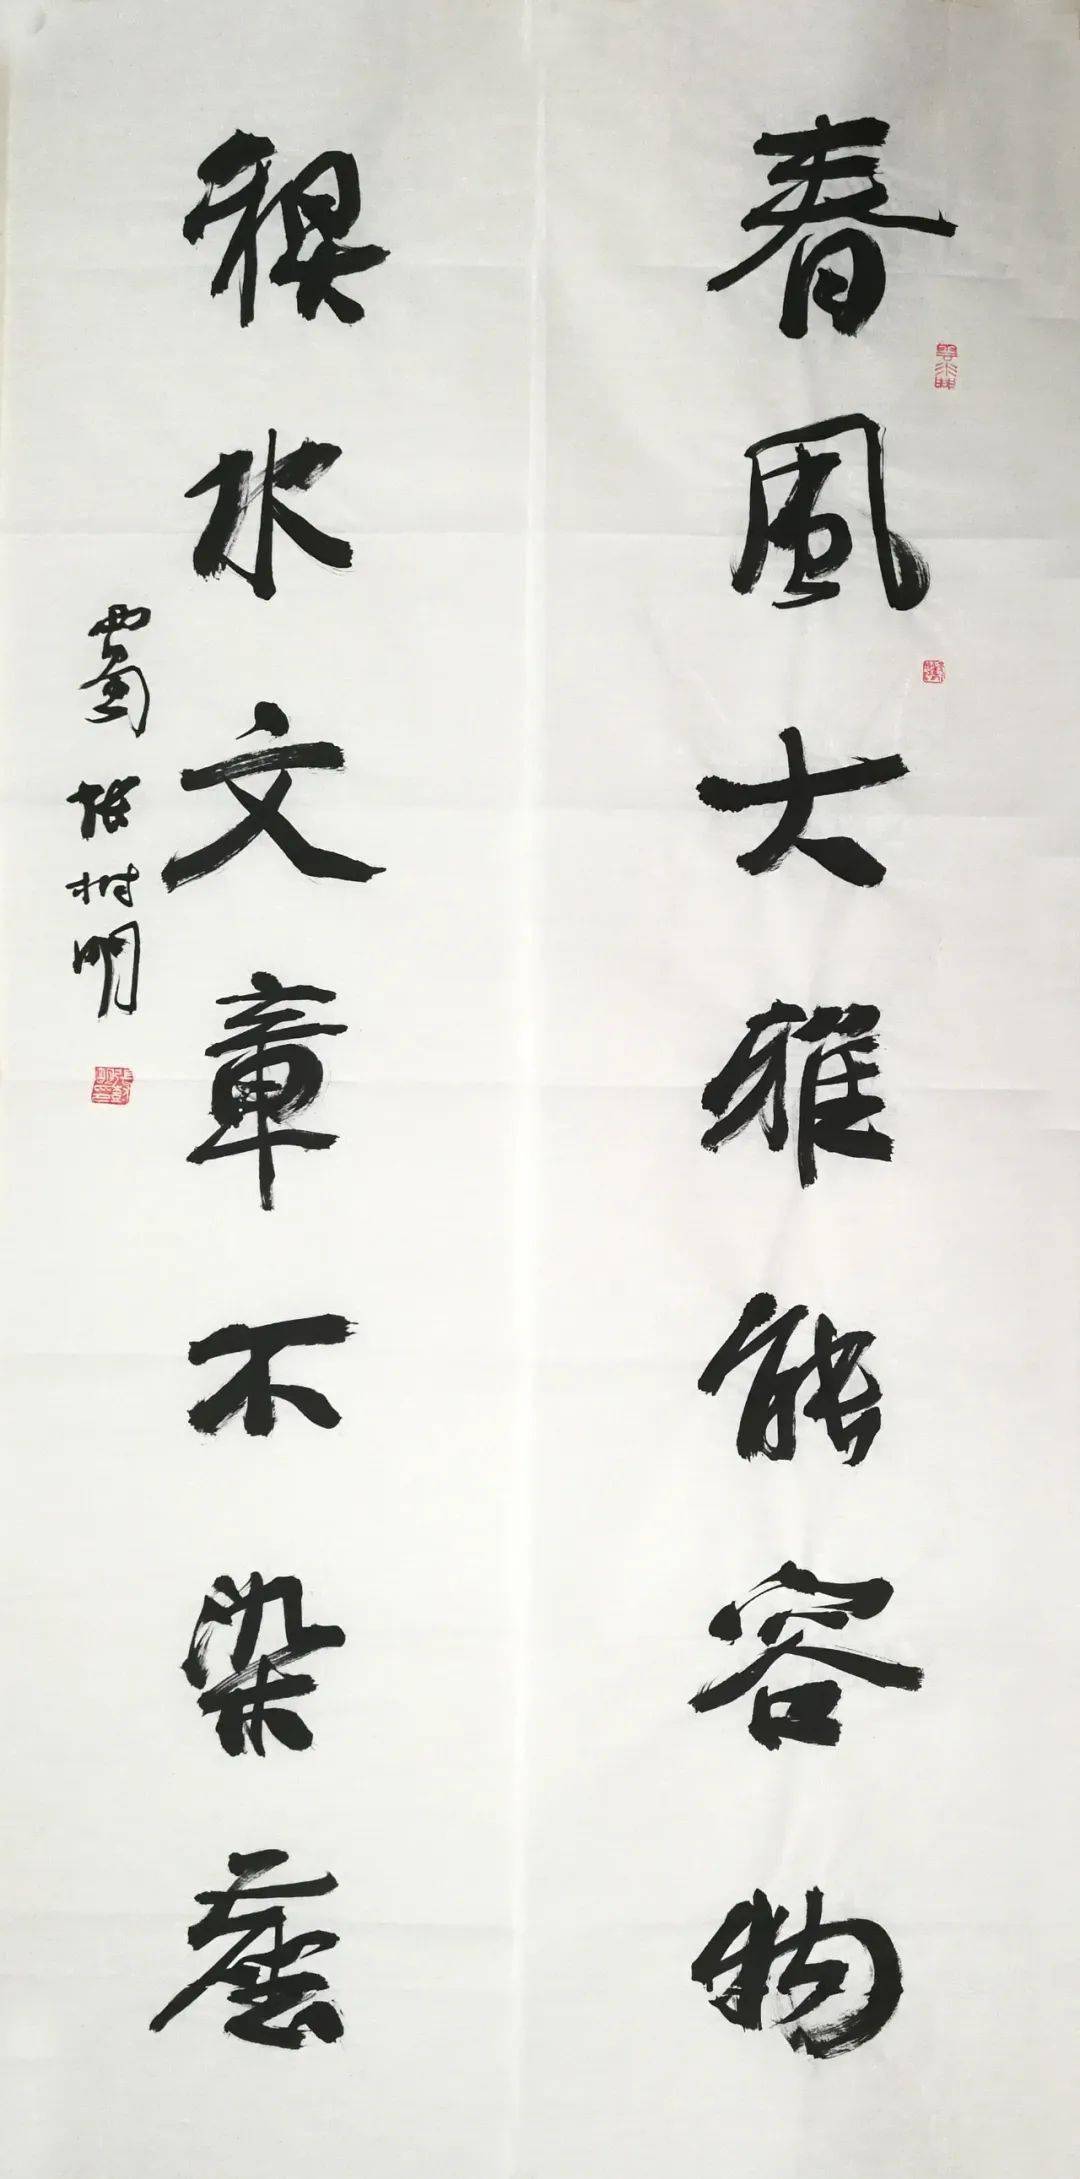 春風大雅能容物
秋水文章不染塵
西蜀張樹明